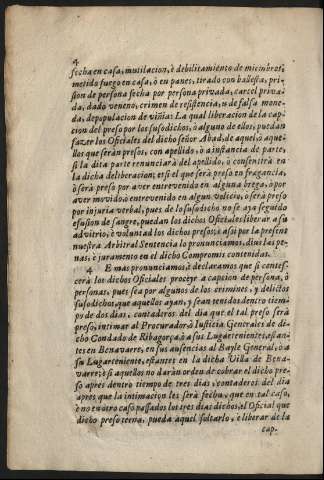 4
fecha en casa, mutilacion, ò debilitamiento de miembros,
metido fuego en casa, ò en panes, tirado con ballesta, pri-
sion de persona fecha por persona privada, carcel priva-
da, dado veneno, crimen de resistencia, u de falsa mone-
da, depopulacion de viñas: La qual liberacion de la cap-
cion del preso por los susodichos, ò alguno de ellos, puedan
fazer los Oficiales del dicho señor Abad, de aquel, ò aque-
llos que seràn presos, con apellido, ò a instancia de parte,
si la dita parte renunciarà del apellido, ò consentirà en
la dicha deliberacion; et si el que serà preso en fragancia,
ò serà preso por aver entrevenido en alguna brega, ò por
aver movido, ò entrevenido en algun volicio, ò serà preso
por injuria verbal, pues de lo susodicho no se aya seguido
efusion de sangre, puedan los dichos Oficiales liberar a su
advitrio, è voluntad los dichos presos; è assi por la present
nuestra Arbitral Sentencia lo pronunciamos, dius las pe-
nas, è juramento en el dicho Compromis contenidas.
4 E mas pronunciamos, è declaramos que si contes-
cerà los dichos Oficiales proceyr a capcion de persona, ò
personas, pues sea por algunos de los crimines, y delictos
susodichos, que aquellos ayan, y sean tenidos dentro tiem-
po de dos dias, contaderos del dia que el tal preso serà
preso, intimar al Procurador, ò Iusticia Generales de di-
cho Condado de Ribagorça, ò a sus Lugartenientes, estan-
tes en Benavarre, en sus ausencias al Bayle General, ò a
su Lugarteniente, estantes en la dicha Villa de Bena-
varre; è si aquellos no daràn orden de cobrar el dicho pre-
so apres dentro tiempo de tres dias, contaderos del dia
apres que la intimacion les serà fecha, que en tal caso,
è no en otro caso passados los tres dias dichos, el Oficial que
dicho preso terna, pueda aquel soltarlo, è liberar de la
cap-